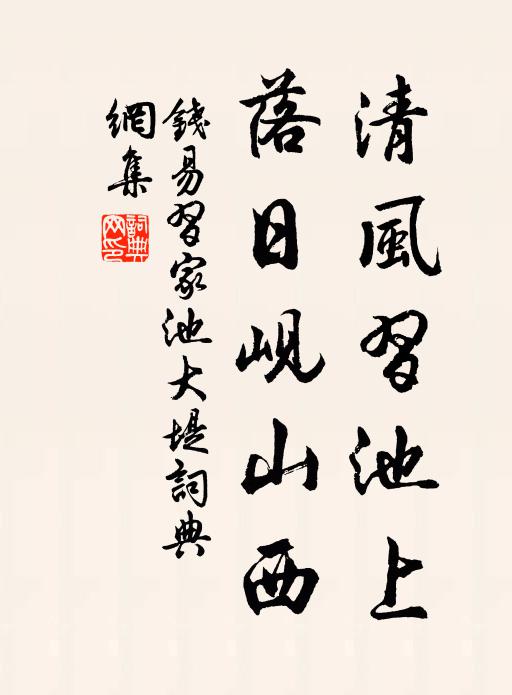 清風習池上
落日峴山西
錢易習家池大堤詞典
網集
詞典網印